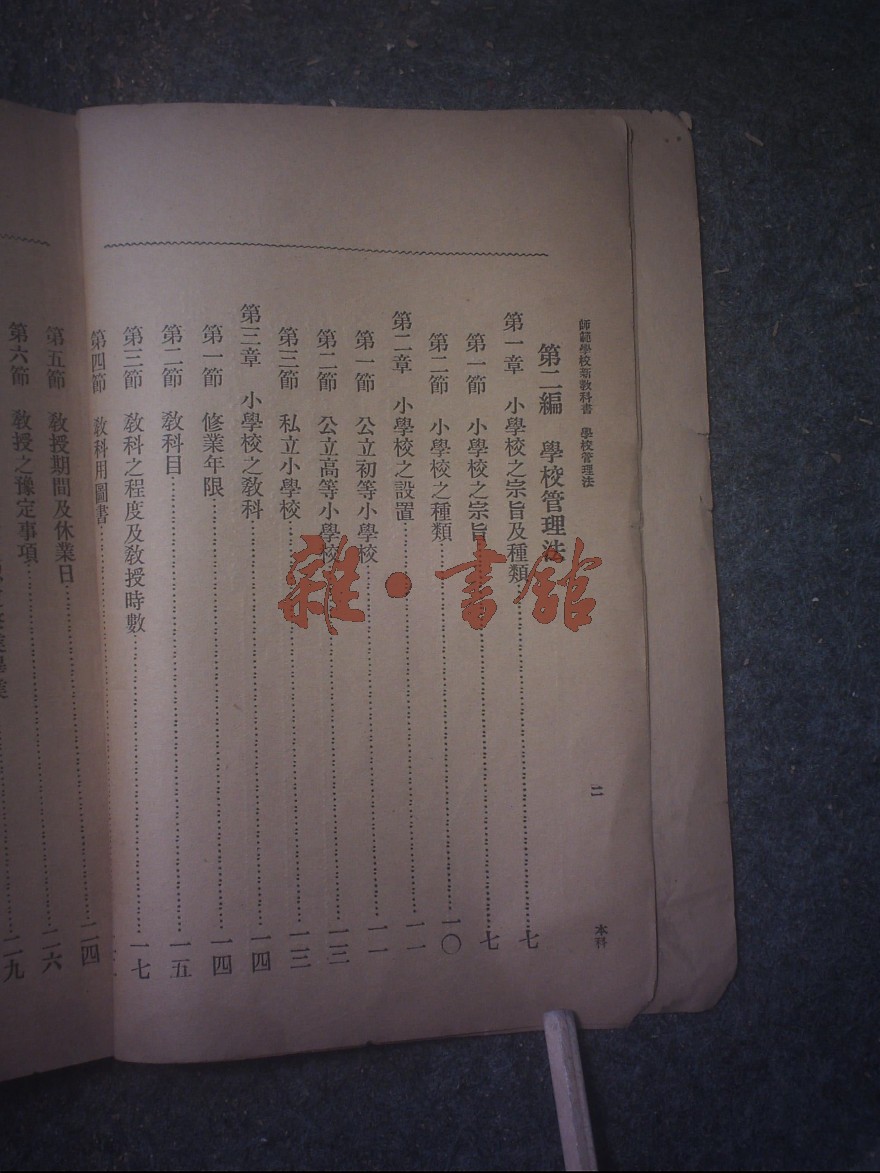 師範學校新教科書　學校管理法　二　本科
第二編　學校管理法
第一章　小學校之宗旨及種類⋯⋯七
第一節　小學校之宗旨⋯⋯七
第二節　小學校之種類⋯⋯一〇
第二章　小學校之設置⋯⋯一一
第一節　公立初等小學校⋯⋯一一
第二節　公立高等小學校⋯⋯一三
第三節　私立小學校⋯⋯一三
第三章　小學校之教科⋯⋯一四
第一節　修業年限⋯⋯一四
第二節　教科目⋯⋯一五
第三節　教科之程度及教授時數⋯⋯一七
第四節　教科用圖書⋯⋯二四
第五節　教授期間及休業日⋯⋯二六
第六節　教授之豫定事項⋯⋯二九
雜·書館